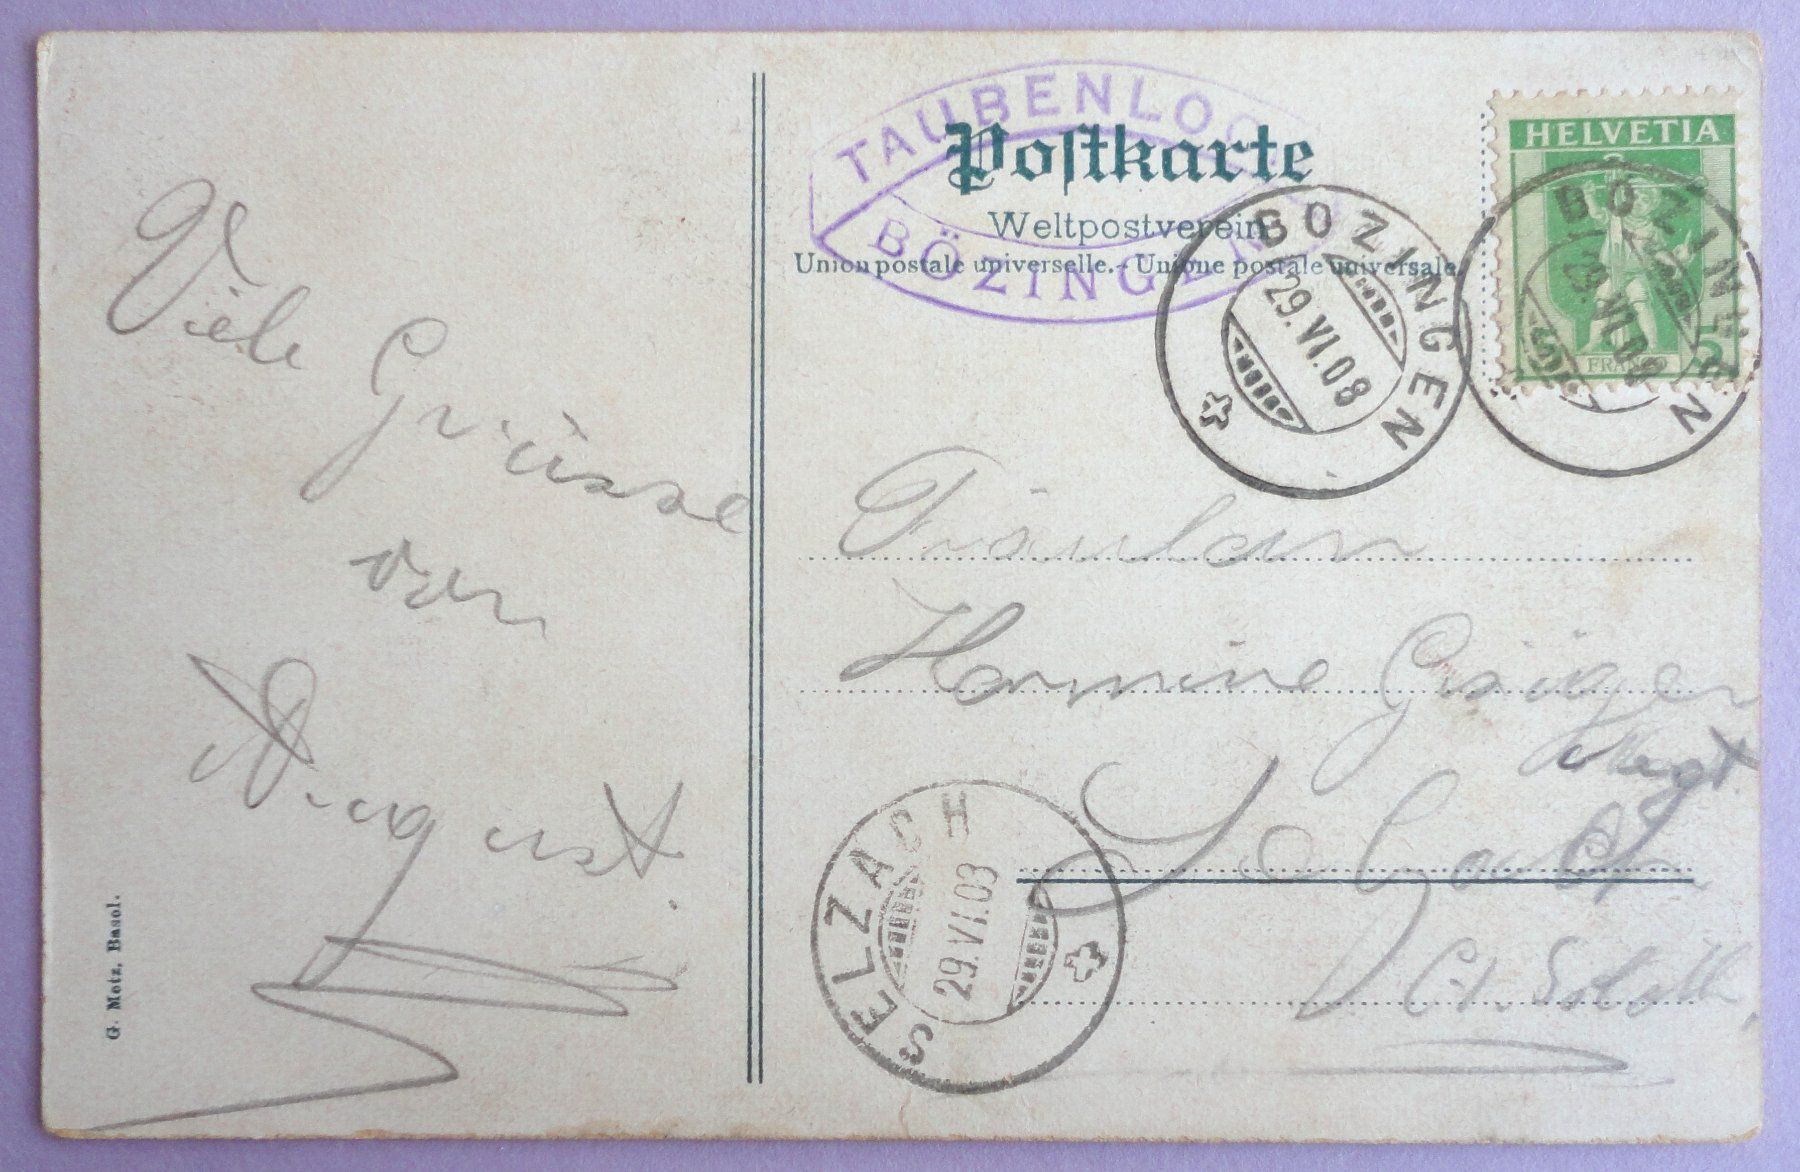 Viele
Grüsse
von
August.
G. Metz, Basel.
TAUBENLOC
BÖZINGEN
Postkarte
Weltpostverein
Union postale universelle. - Unione postale universale.
BÖZINGEN
29.VI.08
HELVETIA
5
FRANCO
BÖZINGEN
29.VI.08
Fräulein
Hermine
Selzach
Ct. Soloth
SELZACH
29.VI.08